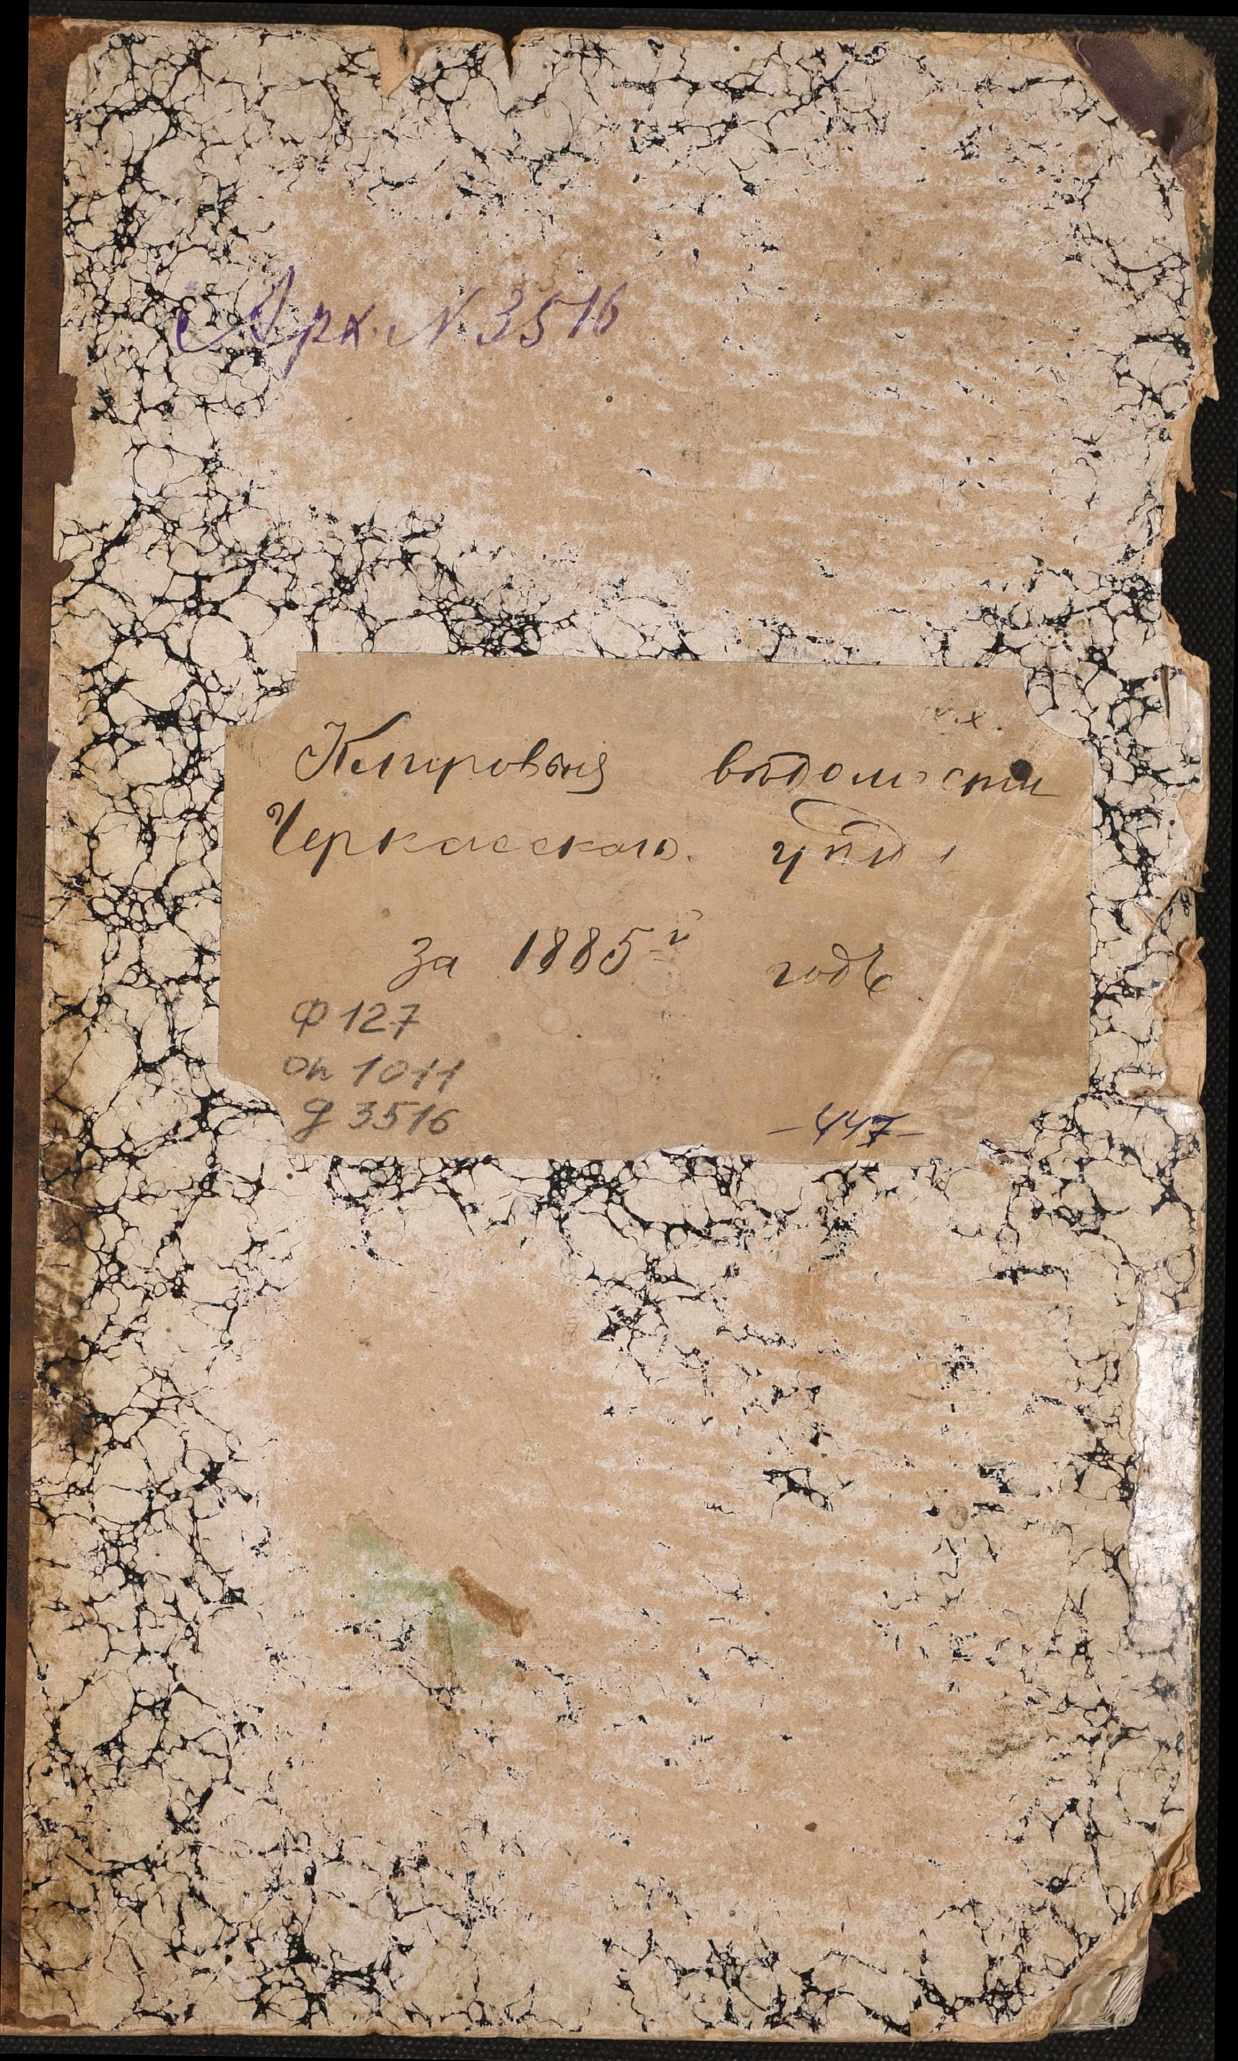 Арх. N 3516
Клировыя вѣдомости
Черкасскаго уѣзда
за 1885й годъ
Ф 127
оп 1011
д 3516
– 447 –